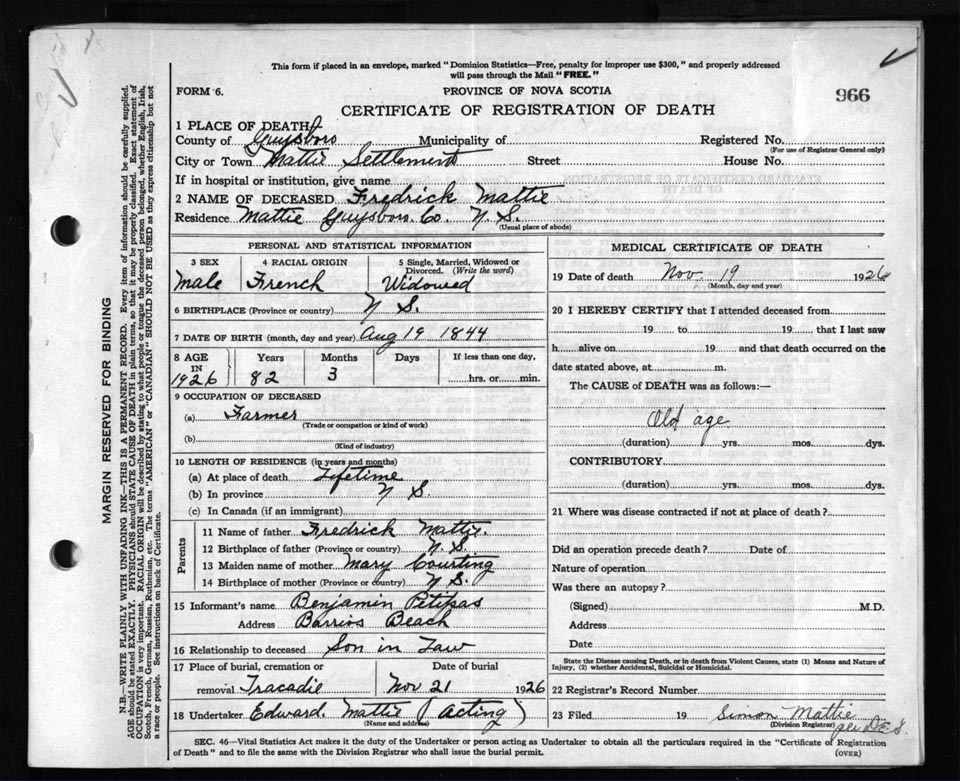 This form if placed in an envelope, marked "Dominion Statistics—Free, penalty for improper use $300," and properly addressed
will pass through the Mail "FREE."
FORM 6.
PROVINCE OF NOVA SCOTIA
966
CERTIFICATE OF REGISTRATION OF DEATH
1 PLACE OF DEATH
County of Guysboro Municipality of Registered No.
(For use of Registrar General only)
City or Town Mattie Settlement Street House No.
If in hospital or institution, give name
2 NAME OF DECEASED Fredrick Mattie
Residence Mattie Guysboro Co. N. S.
(Usual place of abode)
PERSONAL AND STATISTICAL INFORMATION
3 SEX Male
4 RACIAL ORIGIN French
5 Single, Married, Widowed or Divorced. (Write the word) Widowed
6 BIRTHPLACE (Province or country) N S.
7 DATE OF BIRTH (month, day and year) Aug 19 1844
8 AGE IN 1926 Years 82 Months 3 Days If less than one day, hrs. or min.
9 OCCUPATION OF DECEASED
(a) Farmer
(Trade or occupation or kind of work)
(b)
(Kind of industry)
10 LENGTH OF RESIDENCE (in years and months)
(a) At place of death Lifetime
(b) In province N S.
(c) In Canada (if an immigrant)
Parents
11 Name of father Fredrick Mattie.
12 Birthplace of father (Province or country) N. S.
13 Maiden name of mother Mary Courting
14 Birthplace of mother (Province or country) N S.
15 Informant's name Benjamin Petipas
Address Barrios Beach
16 Relationship to deceased Son in Law
17 Place of burial, cremation or removal Tracadie
Date of burial Nov 21 1926
18 Undertaker Edward. Mattie (Acting)
(Name and address)
MEDICAL CERTIFICATE OF DEATH
19 Date of death Nov. 19 1926
(Month, day and year)
20 I HEREBY CERTIFY that I attended deceased from
19 to 19 , that I last saw
h alive on 19 and that death occurred on the
date stated above, at m.
The CAUSE of DEATH was as follows:—
Old age
(duration) yrs. mos. dys.
CONTRIBUTORY
(duration) yrs. mos. dys.
21 Where was disease contracted if not at place of death?
Did an operation precede death? Date of
Nature of operation
Was there an autopsy?
(Signed) M.D.
Address
Date
State the Disease causing Death, or in death from Violent Causes, state (1) Means and Nature of
Injury, (2) whether Accidental, Suicidal or Homicidal.
22 Registrar's Record Number
23 Filed 19 Simon Mattie
(Division Registrar)
per D.E.S.
SEC. 46—Vital Statistics Act makes it the duty of the Undertaker or person acting as Undertaker to obtain all the particulars required in the "Certificate of Registration
of Death" and to file the same with the Division Registrar who shall issue the burial permit.
(OVER)
MARGIN RESERVED FOR BINDING
N.B.—WRITE PLAINLY WITH UNFADING INK—THIS IS A PERMANENT RECORD. Every item of information should be carefully supplied.
AGE should be stated EXACTLY. PHYSICIANS should STATE CAUSE OF DEATH in plain terms, so that it may be properly classified. Exact statement of
OCCUPATION is very important. RACIAL ORIGIN will be described by stating to what people or tongue the deceased person belonged, whether English, Irish,
Scotch, French, German, Russian, Ruthenian, etc. The terms "AMERICAN" or "CANADIAN" SHOULD NOT BE USED as they express citizenship but not
a race or people. See instructions on back of Certificate.